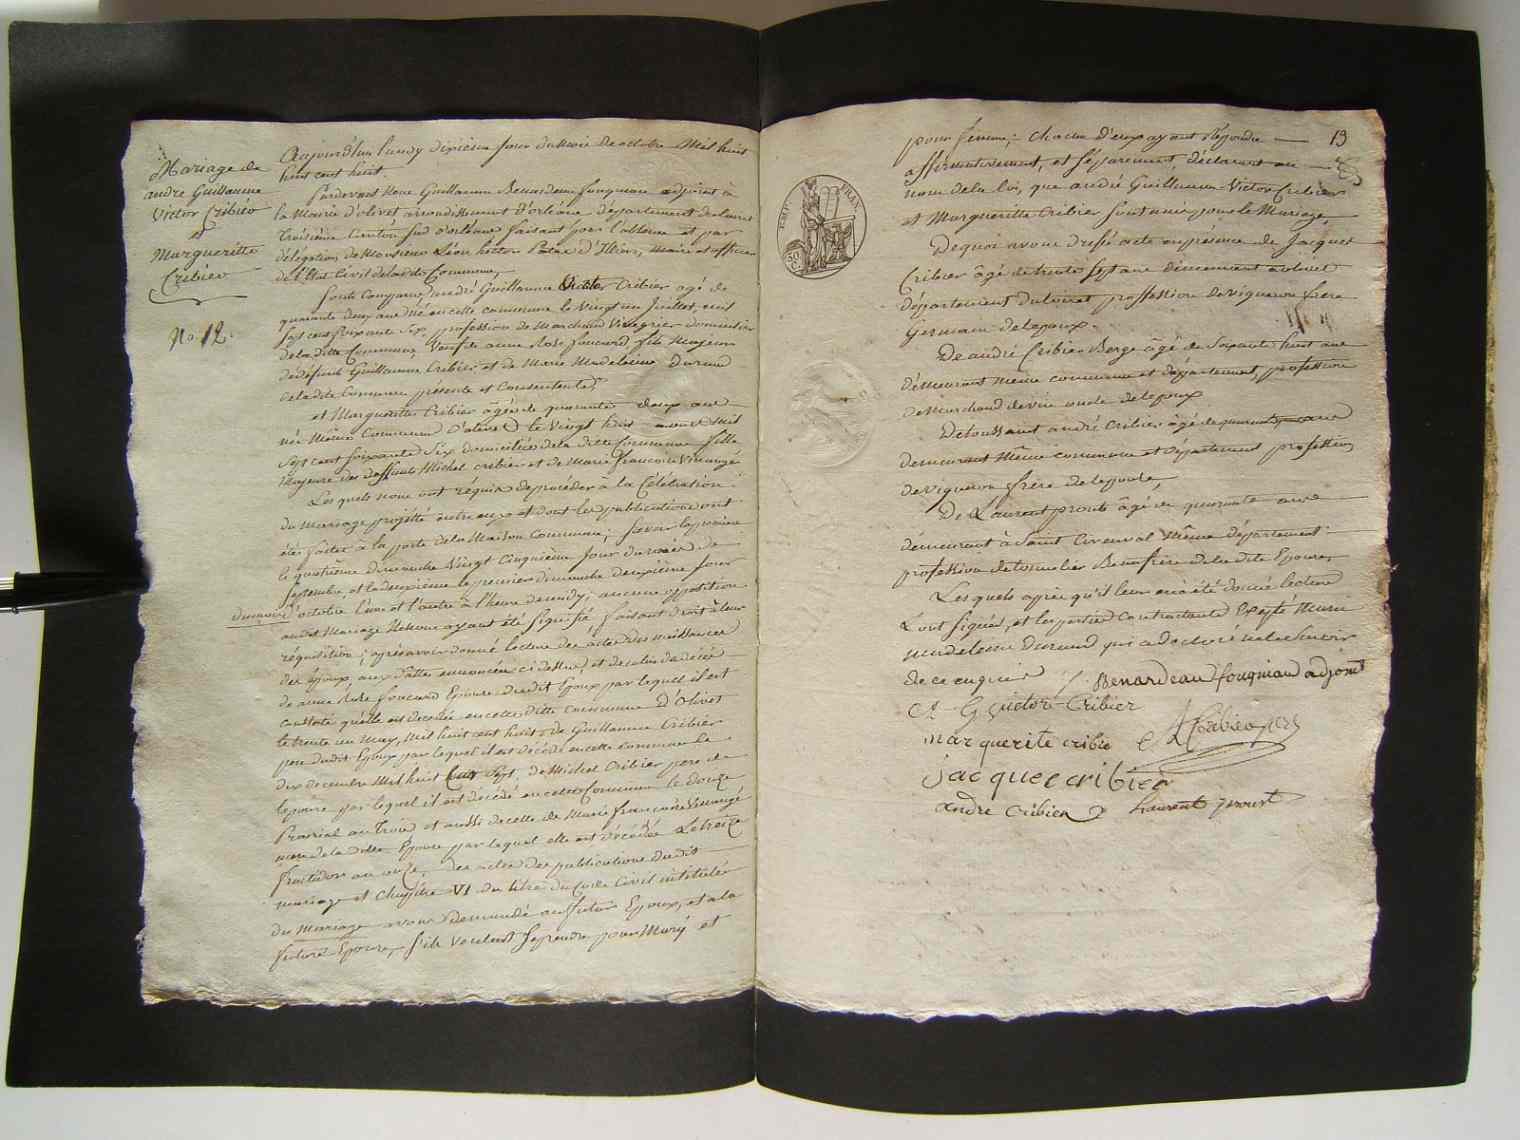 Mariage de
andré Guillaume
Victor Cribier
et
Margueritte
Cribier
No. 12.
Aujourd'hui lundy dixième jour du mois de octobre Mil huit
huit cent huit.
Pardevant Nous Guillaume Benardeau fougniau adjoint à
la Mairie d'olivet arrondissement d'orléans département du loiret
troisième Canton sud d'orléans faisant pour l'absence et par
délégation de Monsieur Léon hector Patas d'Illiers, Maire et officier
de l'état Civil de ladite Commune,
Sont Comparus andré Guillaume Victor Cribier agé de
quarante deux ans né en cette commune le Vingt un Juillet, mil
sept cent soixante six, profession de Marchand Vinaigrier domicilié
de la ditte Commune Veuf de anne Rose foucard fils Majeur
de défunt Guillaume Cribier et de Marie Madeleine Durand
de ladite Commune présente et Consentente,
et Margueritte Cribier âgée de quarante deux ans
née Même Commune d'olivet le Vingt huit mil
sept cent soixante six domiciliée de la ditte Commune fille
Majeure des deffunts Michel cribier et de Marie françoise
Les quels nous ont réquis de procéder à la Célébration
du mariage projetté entre eux et dont les publications ont
été faites à la porte de la Maison Commune, Savoir la première
le quatrième dimanche Vingt Cinquième jour du mois de
Septembre, et la deuxième le premier dimanche deuxième jour
du mois d'octobre l'une et l'autre à l'heure de midy; aucune opposition
audit Mariage ne Nous ayant été signifié faisant droit à leur
réquisition; après avoir donné lecture des actes des naissances
des époux, aux dattes énoncées ci dessus, et de celui de décès
de anne Rose foucard Epouse dudit Epoux par lequel il est
constaté qu'elle est décédée en cette ditte commune d'Olivet
le trente un may, mil huit cent huit, de Guillaume Cribier
père dudit Epoux par lequel il est décédé en cette commune le
dix decembre mil huit Cent Sept, de Michel Cribier père de
lepouse par lequel il est décédé en cette Commune le douze
Prairial an Trois et aussi de celle de Marie françoise
mere de la ditte Epouse par lequel elle est décédée Le treize
fructidor an onze, des actes des publications dudit
mariage et Chapitre VI du titre du Code Civil intitulés
du Mariage avons demandé au futur Epoux, et à la
future Epouse, s'ils veulent se prendre pour Mary et
13
pour femme; chacun d'eux ayant répondu
affirmativement, et séparément déclarons au
nom de la loi, que andré Guillaume Victor Cribier
et Margueritte Cribier sont unis pour le Mariage,
De quoi avons dressé acte en présence de Jacques
Cribier âgé de trente sept ans demeurant à olivet
département du loiret profession de Vigneron frère
Germain de lepoux.
De andré Cribier Berge âgé de soixante huit ans
demeurant même commune et département, profession
de Marchand de vin oncle de lepoux
De toussaint andré Cribier âgé de quarante ans
demeurant Même commune et département profession
de Vigneron frère de lepouse,
De Laurent proust âgé de quarante ans
demeurant à Saint même département
profession de tonnelier Beaufrère de la dite Epouse,
Les quels après qu'il leur en a été donné lecture
L'ont signés, et les parties Contractantes Excepté Marie
madeleine Durand qui a declaré ne le Savoir
de ce enquise
Benardeau fougniau adjoint
A G victor Cribier
marguerite cribie
Cribier
jacque cribier
andre cribier
Laurent proust
EMP. FRAN.
50
C.